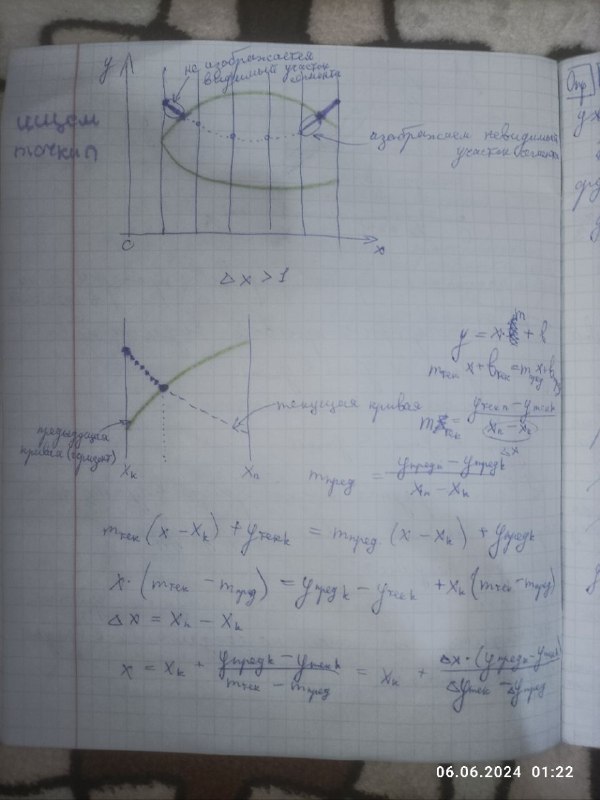 y
не изображается
видимый участок
сегмента
ищем
точки п
изображаем невидимый
участок сегмента
0
x
Δx > 1
y = x · m + b
m тек x + b тек = m пред x + b пред
текущая кривая
m тек = (y тек n − y тек k) / (x n − x k)
Δx
предыдущая
кривая (горизонт)
x k
x n
m пред = (y пред n − y пред k) / (x n − x k)
m тек (x − x k) + y тек k = m пред (x − x k) + y пред k
x · (m тек − m пред) = y пред k − y тек k + x k (m тек − m пред)
Δx = x n − x k
x = x k + (y пред k − y тек k) / (m тек − m пред) = x k + Δx · (y пред k − y тек k) / (Δy тек − Δy пред)
Опр
06.06.2024 01:22